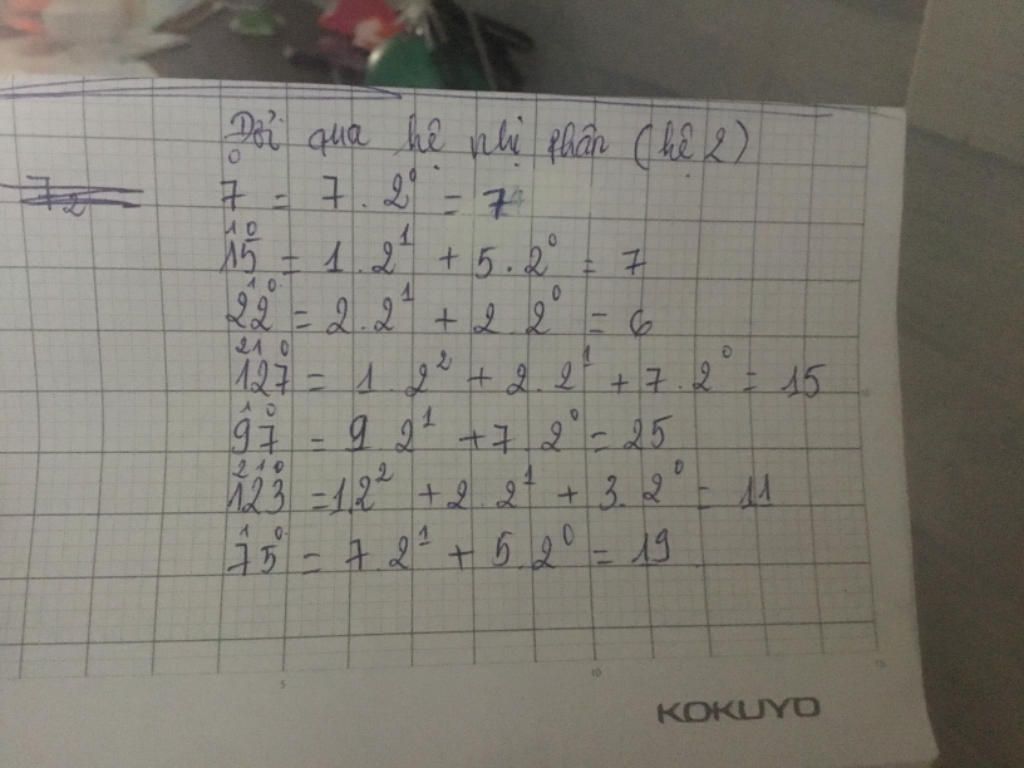 Đổi qua hệ nhị phân (hệ 2)
0
7 = 7 . 2⁰ = 7
7₂
1 0
15 = 1 . 2¹ + 5 . 2⁰ = 7
1 0
22 = 2 . 2¹ + 2 . 2⁰ = 6
2 1 0
127 = 1 . 2² + 2 . 2¹ + 7 . 2⁰ = 15
1 0
97 = 9 2¹ + 7 . 2⁰ = 25
2 1 0
123 = 12² + 2 . 2¹ + 3 . 2⁰ = 11
1 0
75 = 7 . 2¹ + 5 . 2⁰ = 19
5 10 15
KOKUYO